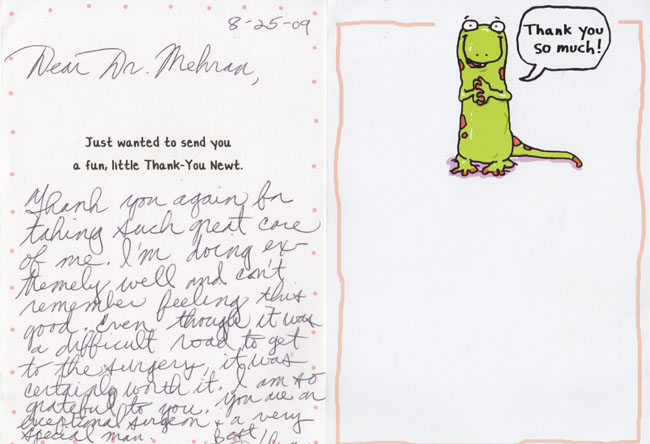 8-25-09
Dear Dr. Mehran,
Just wanted to send you
a fun, little Thank-You Newt.
Thank you again for
taking such great care
of me. I'm doing ex-
tremely well and can't
remember feeling this
good. Even though it was
a difficult road to get
to the surgery, it was
certainly worth it. I am so
grateful to you. You are an
exceptional surgeon & a very
special man.
Best
Thank you
so much!